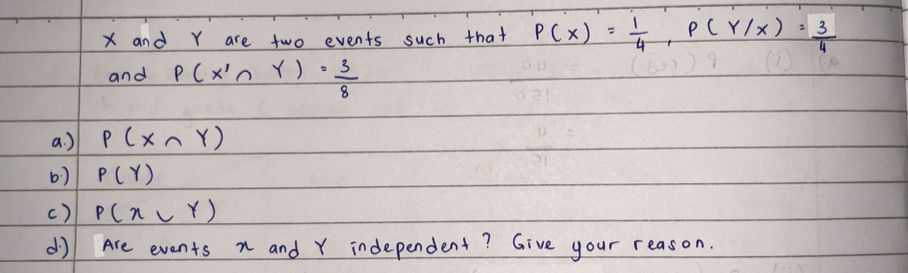 X and Y are two events such that P(X) = 1/4, P(Y/X) = 3/4
and P(X'∩ Y) = 3/8
a.) P(X ∩ Y)
b.) P(Y)
c) P(x ∪ Y)
d.) Are events x and Y independent? Give your reason.